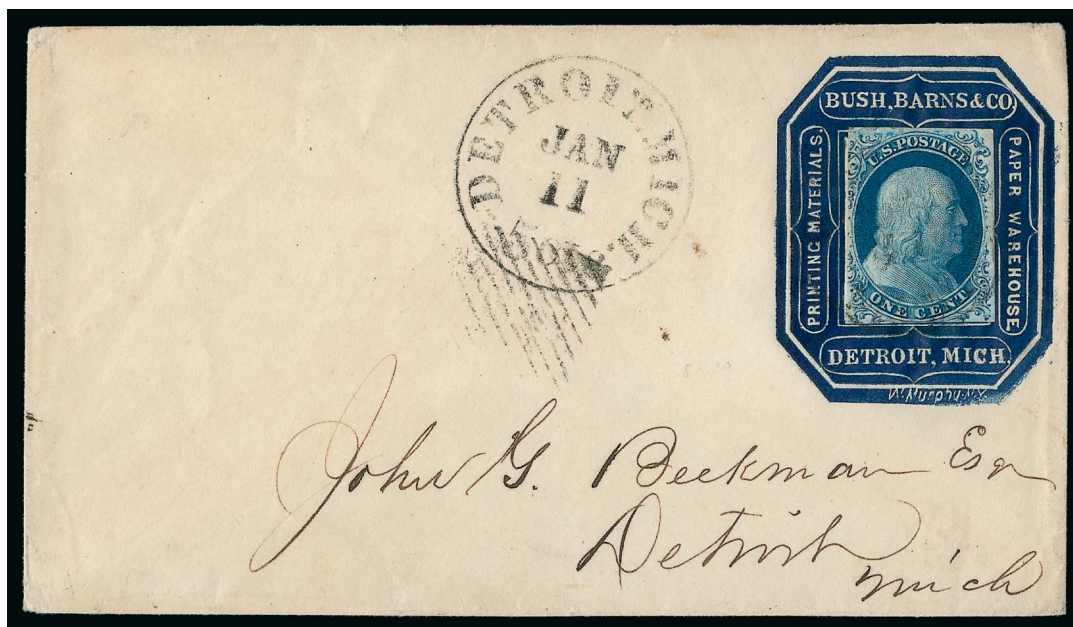 DETROIT. MICH.
JAN
11
BUSH, BARNS & CO.
PRINTING MATERIALS.
PAPER WAREHOUSE
U.S. POSTAGE
ONE CENT
DETROIT, MICH.
John G. Beekman Esq
Detroit
Mich